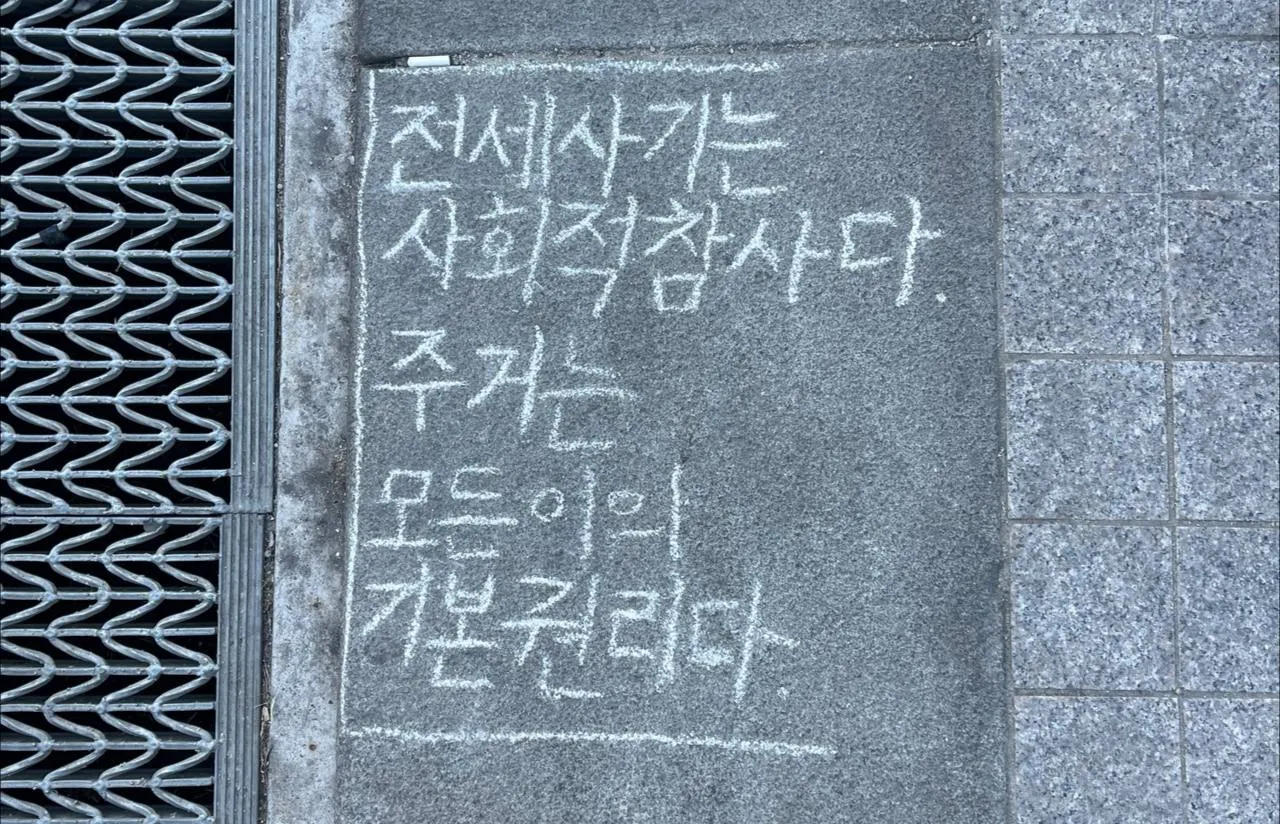 전세사기는
사회적참사다.
주거는
모든이의
기본권리다.